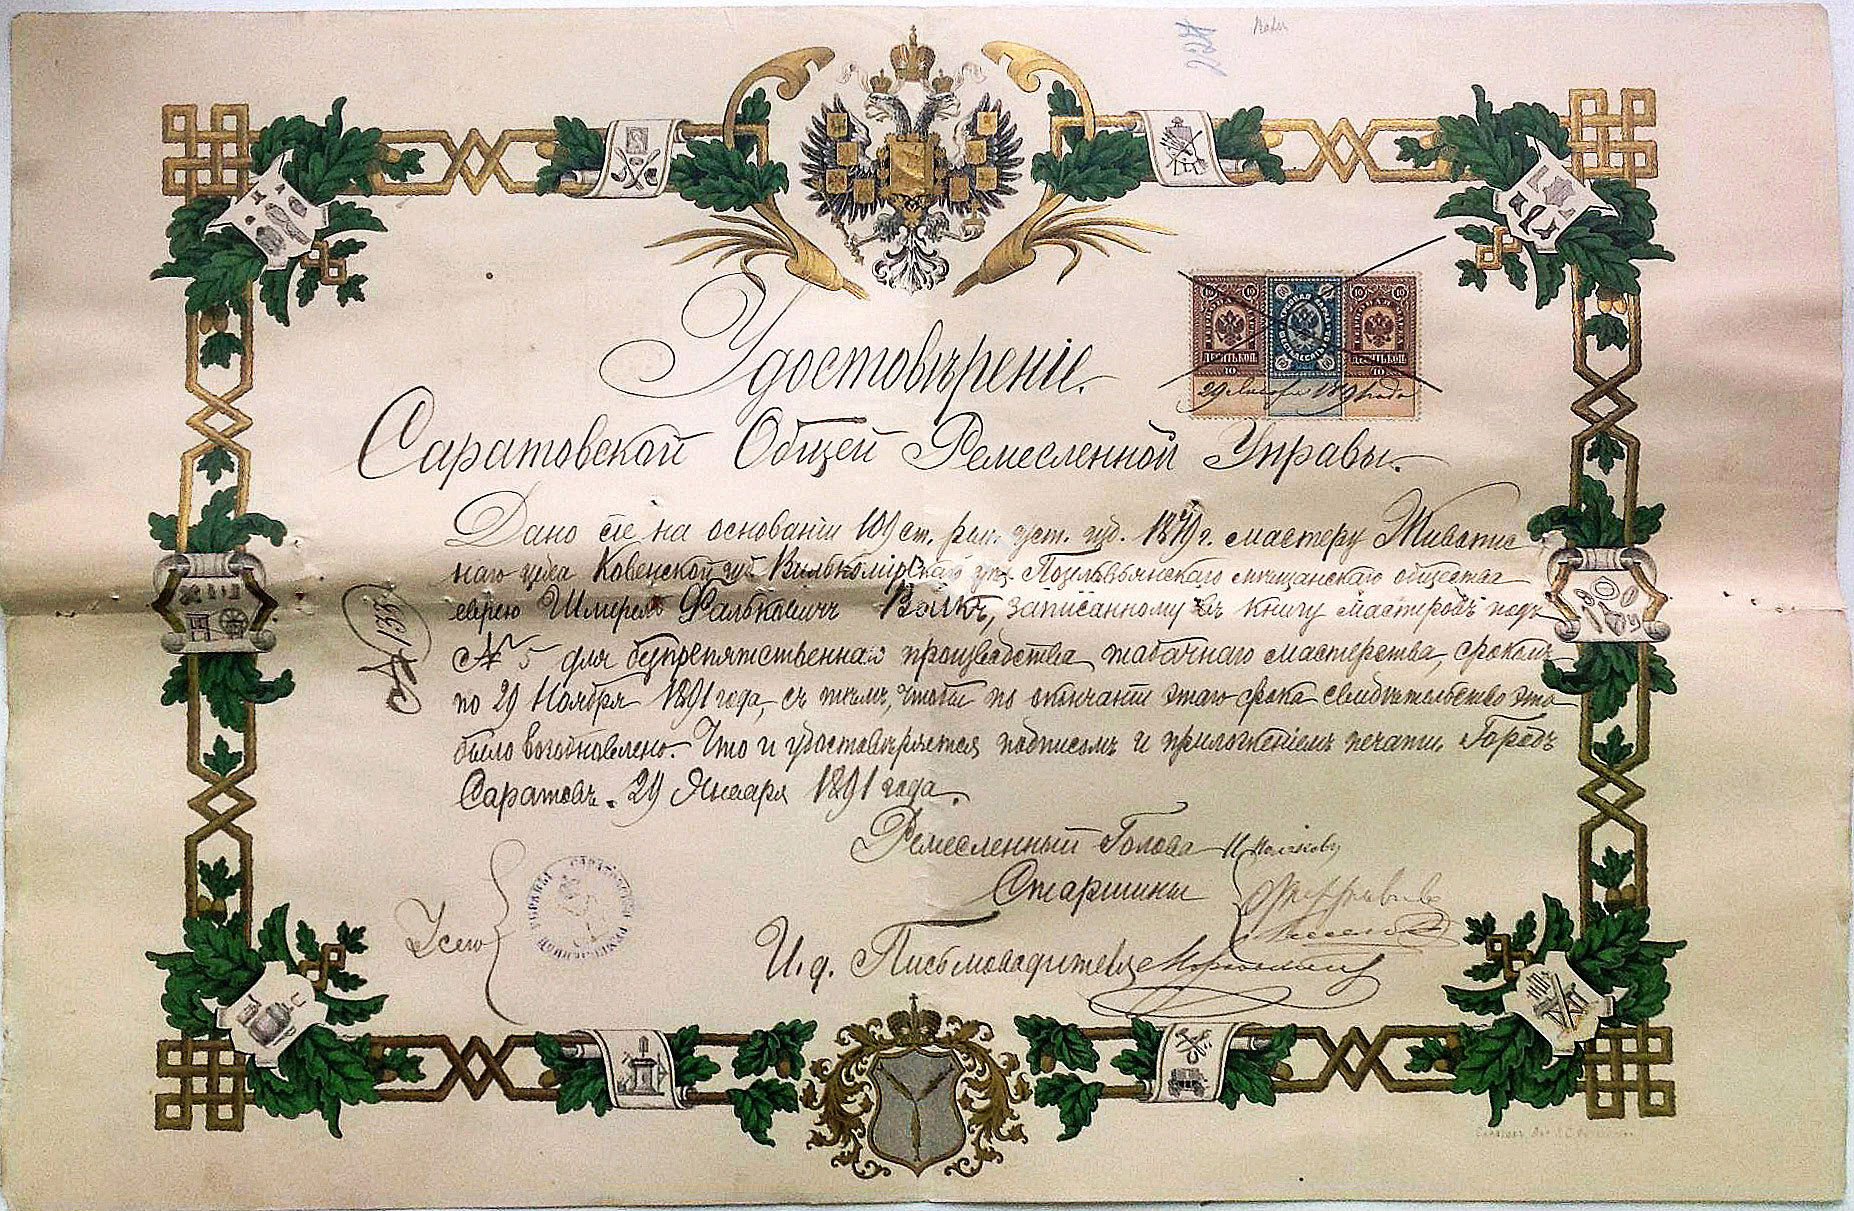 Удостовѣреніе
Саратовской Общей Ремесленной Управы.
Дано сіе на основаніи 109 ст. рем. уст. изд. 1879 г. мастеру Живопис
наго цеха Ковенской губ Вилькомірскаго уѣз. мѣщанскаго общества
еврею Шмерелю Фальковичу Волькъ, записанному въ книгу мастеровъ подъ
№ 5 для безпрепятственнаго производства табачнаго мастерства, срокомъ
по 29 Ноября 1891 года, съ тѣмъ, чтобы по окончаніи этаго срока свидѣтельство это
было возобновлено. Что и удостовѣряется подписомъ и приложеніемъ печати. Городъ
Саратовъ. 29 Января 1891 года.
№ 133
Ремесленный Голова
Старшины
И. д. Письмоводителя
10 10
ДЕСЯТЬ КОП.
10
10 10
ДЕСЯТЬ КОП.
10
29 Января 1891 года